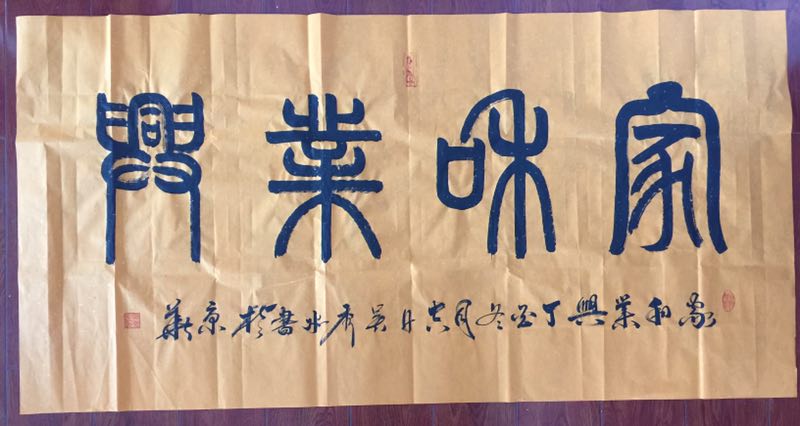 家和業興
家和業興丁酉冬月吉日吴秀水書於京華